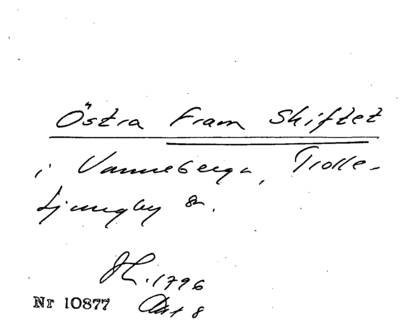 Östra Fram Skiftet
i Vanneberga, Trolle-
Ljungby sn.
1796
Nr 10877 Akt 8